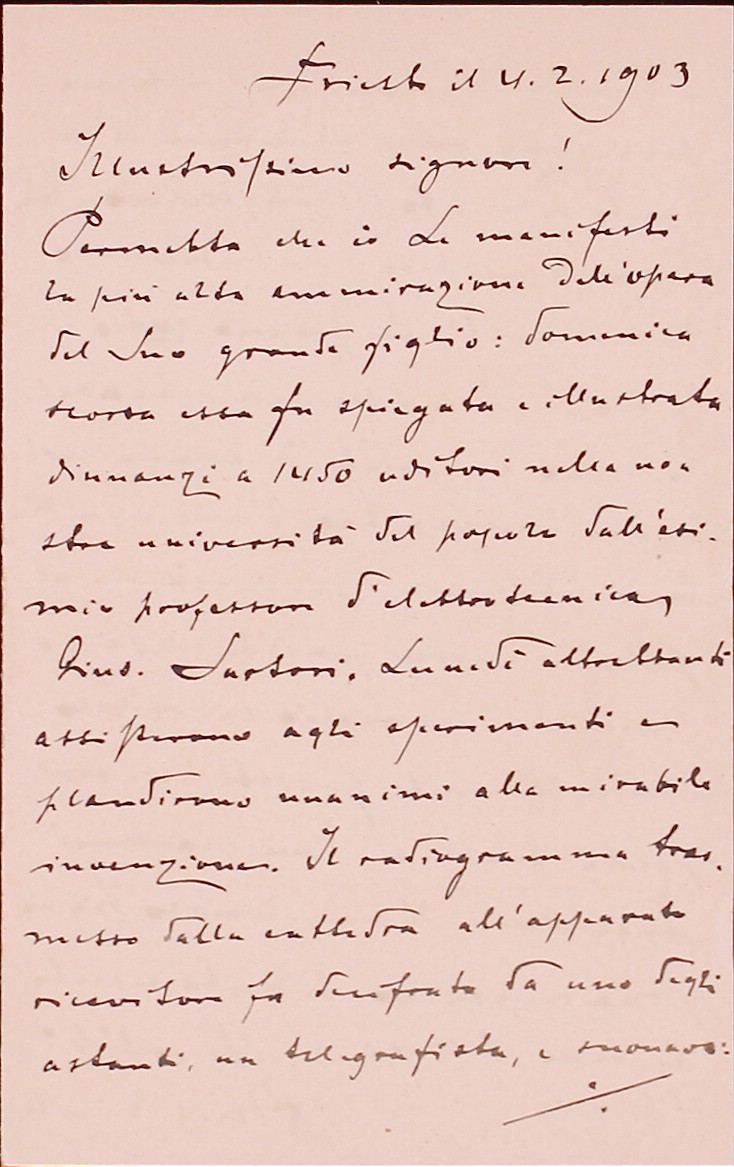 Trieste il 4. 2. 1903
Illustrissimo signore!
Permetta che io Le manifesti
la più alta ammirazione dell'opera
del Suo grande figlio: domenica
scorsa essa fu spiegata e illustrata
dinnanzi a 1450 uditori nella no
stra università del popolo dall'esi-
mio professore d'elettrotecnica,
Gius. Sartori. Lunedì altrettanti
assisterono agli sperimenti e
plaudirono unanimi alla mirabile
invenzione. Il radiogramma tras-
messo dalla cattedra all'apparato
ricevitore fu decifrato da uno degli
astanti, un telegrafista, e suonava: